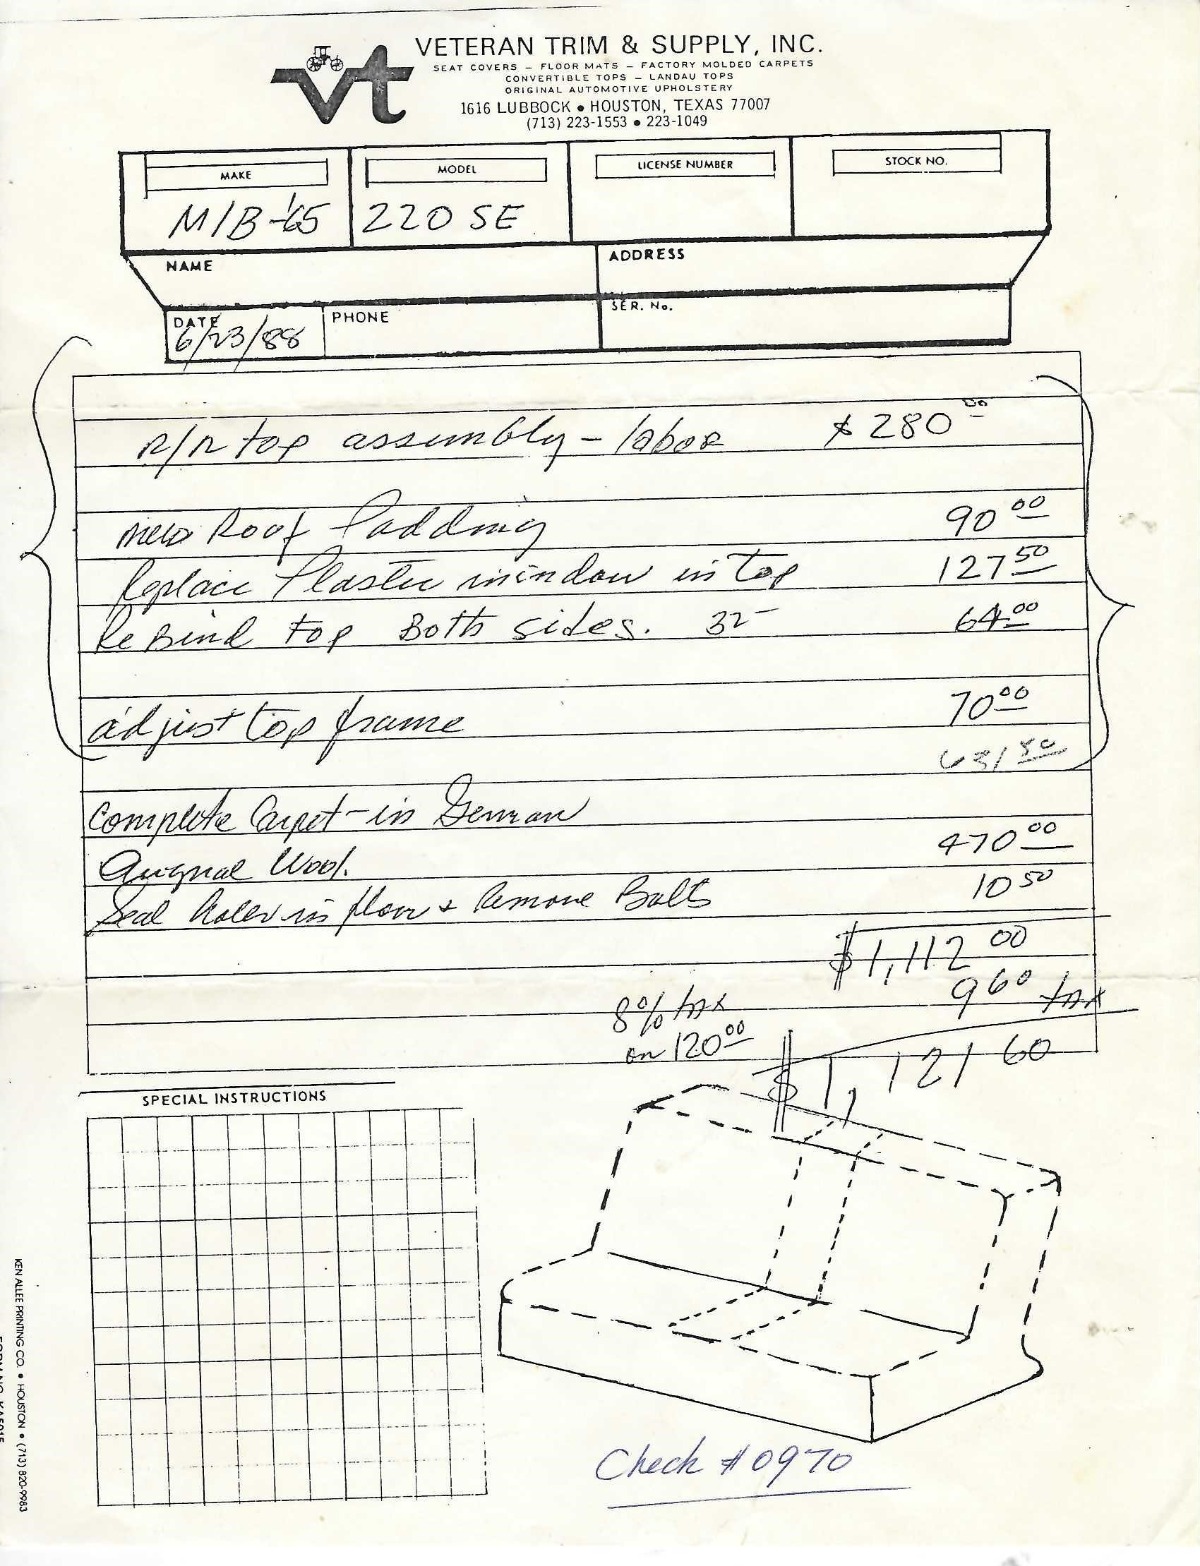 vt
VETERAN TRIM & SUPPLY, INC.
SEAT COVERS – FLOOR MATS – FACTORY MOLDED CARPETS
CONVERTIBLE TOPS – LANDAU TOPS
ORIGINAL AUTOMOTIVE UPHOLSTERY
1616 LUBBOCK • HOUSTON, TEXAS 77007
(713) 223-1553 • 223-1049
MAKE MODEL LICENSE NUMBER STOCK NO.
M/B-'65 220 SE
NAME ADDRESS
DATE PHONE SER. No.
6/23/88
R/R top assembly – labor $280 00
new Roof Padding 90 00
Replace Plastic window in top 127 50
ReBind top Both sides. 32 – 64 00
adjust top frame 70 00
631 50
Complete Carpet – in German
Original Wool. 470 00
Seal holes in floor & Remove Bolts 10 50
$1,112 00
9 60 tax
8% tax
on 120 00
$1,121 60
SPECIAL INSTRUCTIONS
Check #0970
KEN ALLEE PRINTING CO. • HOUSTON • (713) 820-9983